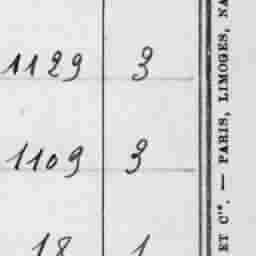 1129 3
1109 3
18 1
ET Cie. — PARIS, LIMOGES, NA